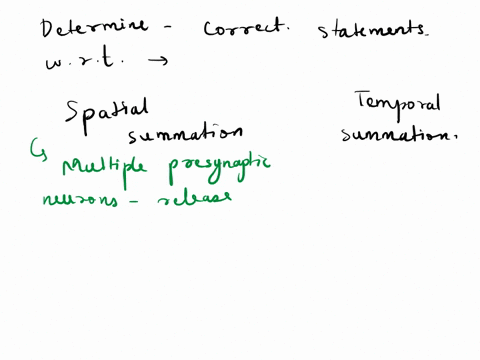 Determine - correct. statements.
w.r.t. →
Spatial summation
Temporal summation.
↳ Multiple presynaptic
neurons - release